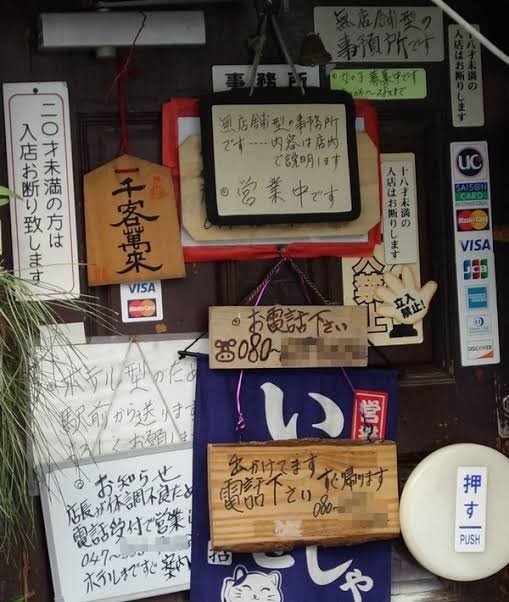 無店舗型の
事務所です
事務所
十八才未満の
入店はお断りします
無店舗型の事務所
です……内容は店内
で説明します
営業中です
二〇才未満の方は
入店お断り致します
千客萬来
十八才未満の
入店はお断りします
UC
SAISON
CARD
INTERNATIONAL
MasterCard
VISA
JCB
AMERICAN EXPRESS
Diners Club
DISCOVER
VISA
MasterCard
立入
禁止!
お電話下さい
080-
ホテル型のため
駅前から送ります
お願いします
い
営
出かけてます
すぐ帰ります
電話下さい
080-
しゃ
お知らせ
店長が体調不良のため
電話受付で営業し
047-
ホテルまですぐ案内
押す
PUSH